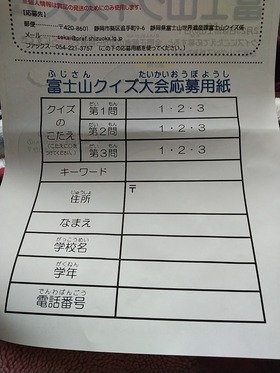 【応募先】
郵便 〒420-8601 静岡市葵区追手町9-6 静岡県富士山世界遺産課富士山クイズ係
メール
ファックス 054-221-3757 (この下の応募用紙を使ってください。)
ふじさん たいかいおうぼようし
富士山クイズ大会応募用紙
クイズ
の
こたえ
だい もん
第1問 1・2・3
だい もん
第2問 1・2・3
だい もん
第3問 1・2・3
キーワード
じゅうしょ
住所 〒
なまえ
がっこうめい
学校名
がくねん
学年
でんわばんごう
電話番号